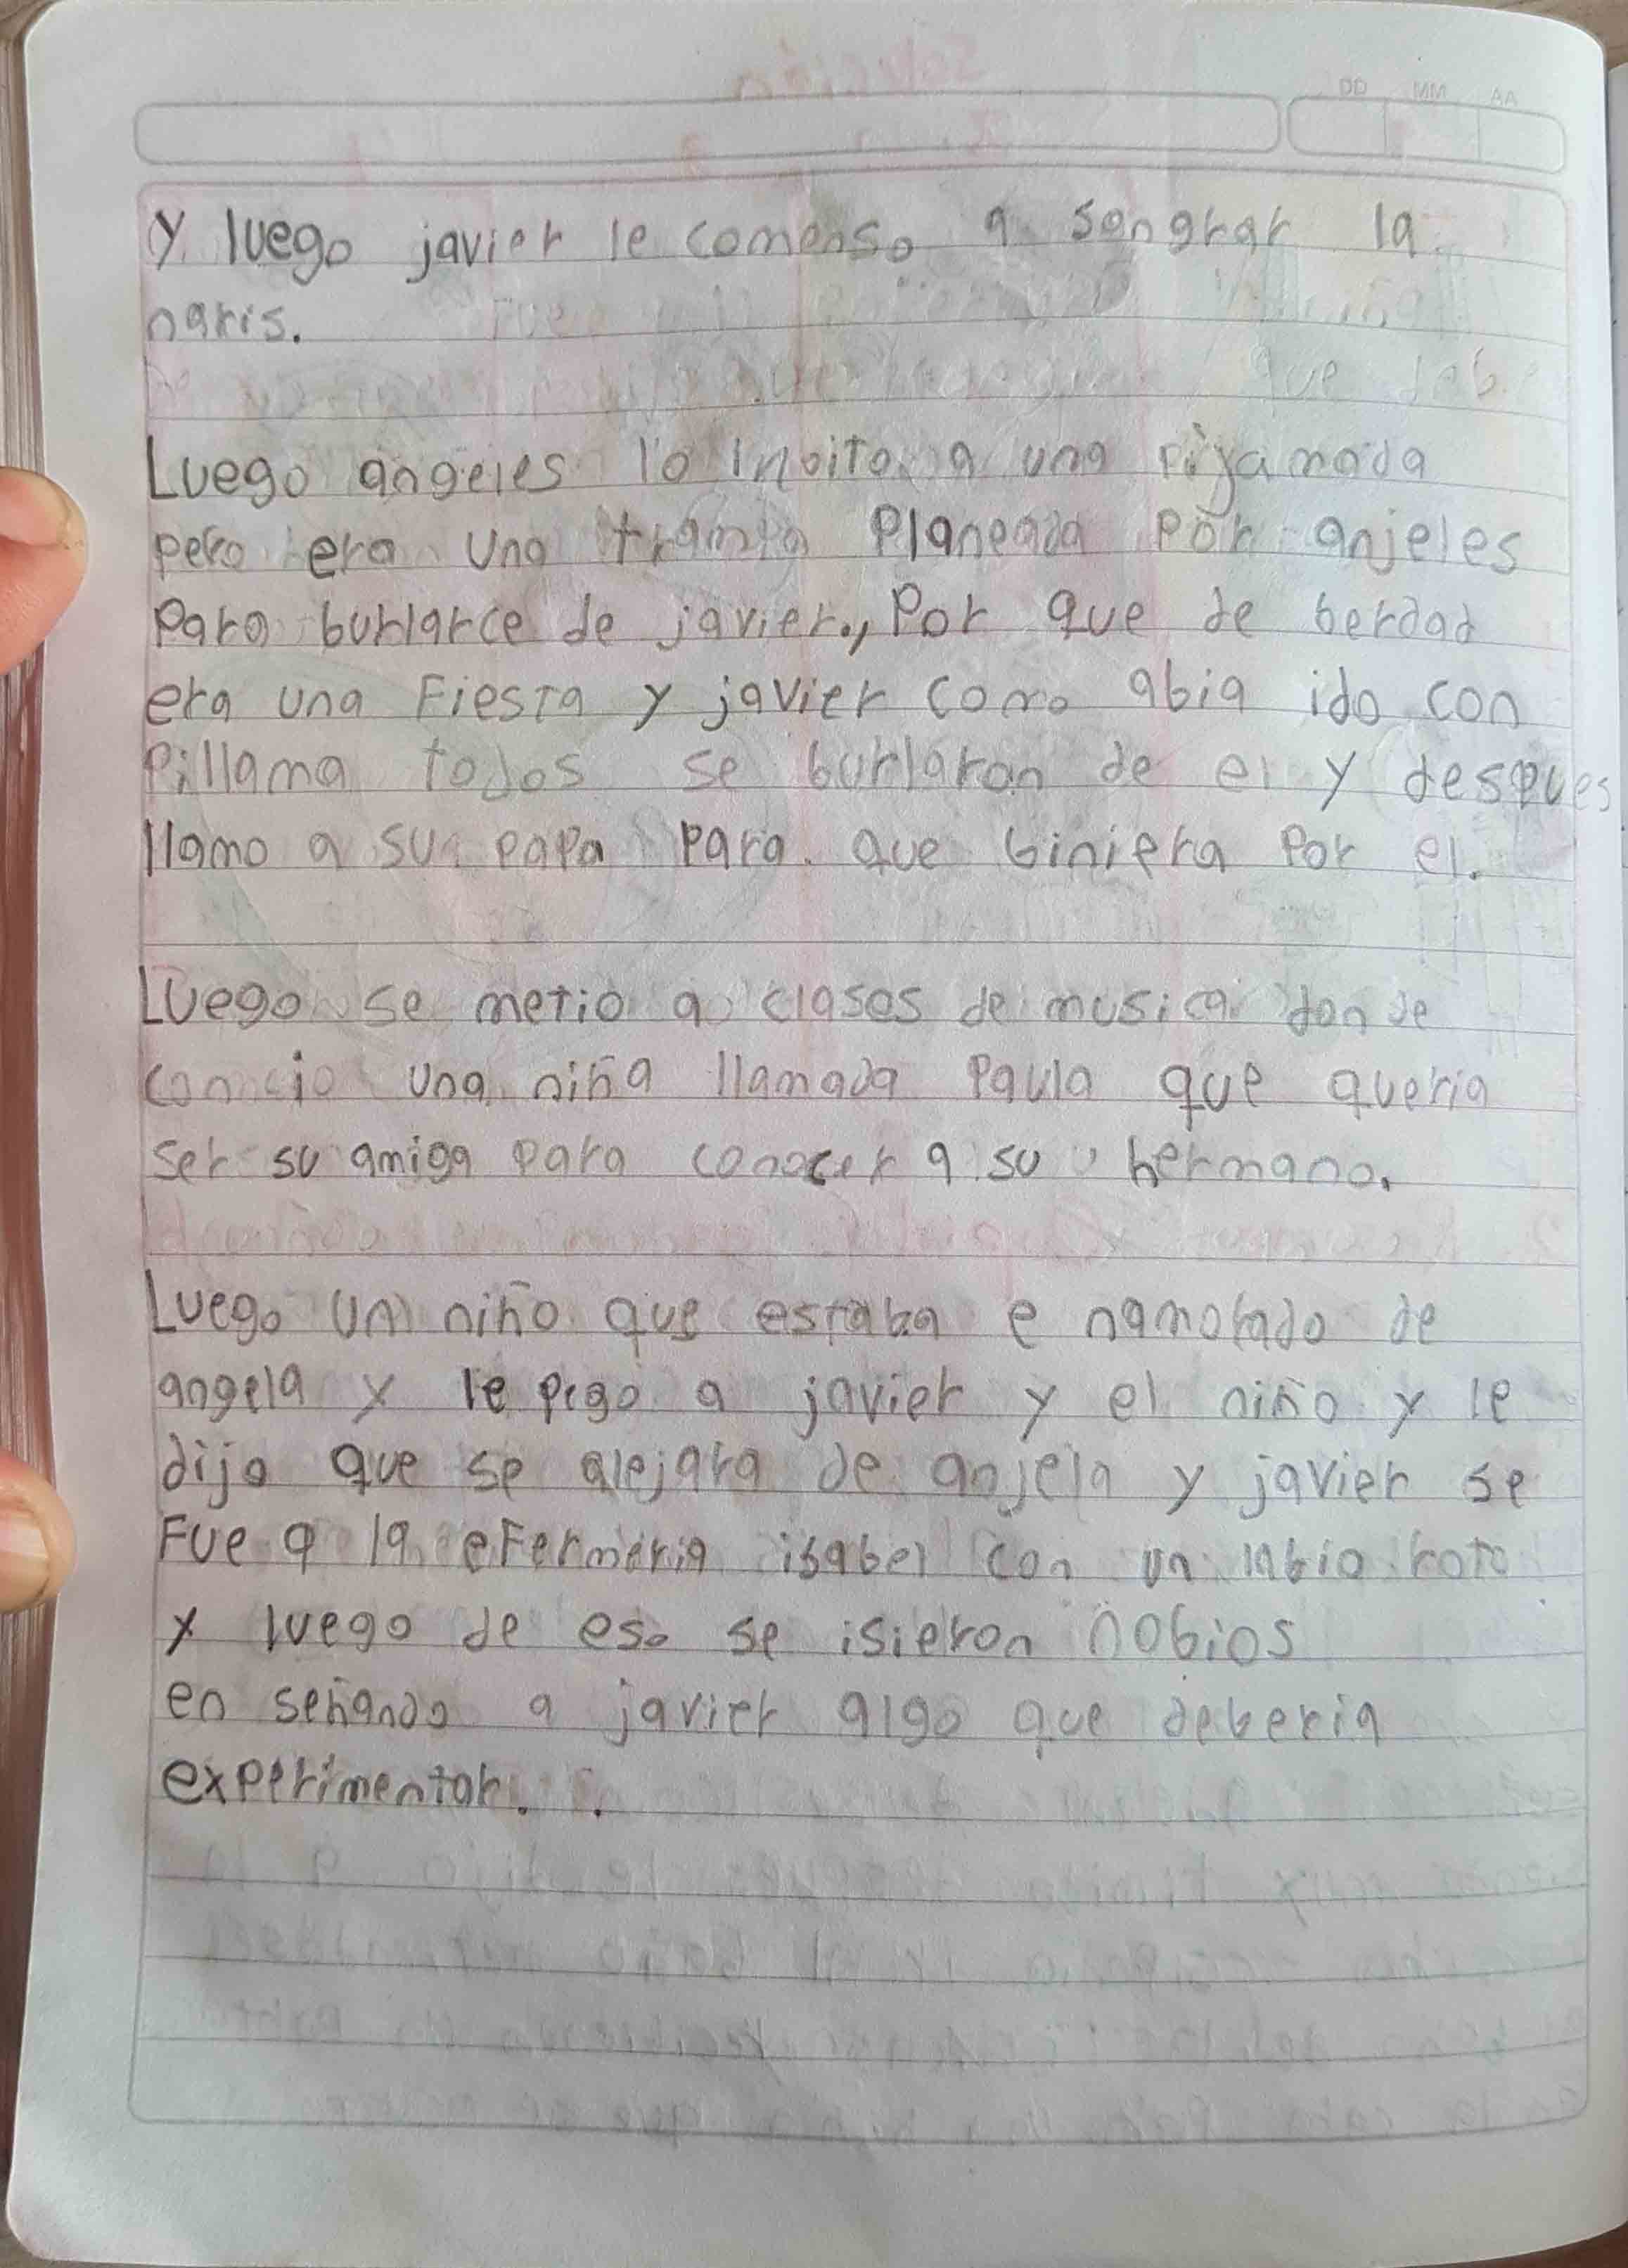 DD MM AA
y luego javier le comenso a sangrar la
naris.
Luego angeles lo invito a una pijamada
pero era una trampa Planeada por anjeles
para burlarce de javier., Por que de berdad
era una Fiesta y javier como abia ido con
Pillama todos se burlaron de el y despues
llamo a su papa para que biniera por el.
Luego se metio a clases de musica donde
concio una niña llamada Paula que queria
ser su amiga para conocer a su hermano.
Luego un niño que estaba e namorado de
angela y le pego a javier y el niño y le
dijo que se alejara de anjela y javier se
Fue a la eFermeria isabel con un labio roto
y luego de eso se isieron nobios
en señando a javier algo que deberia
experimentar. .